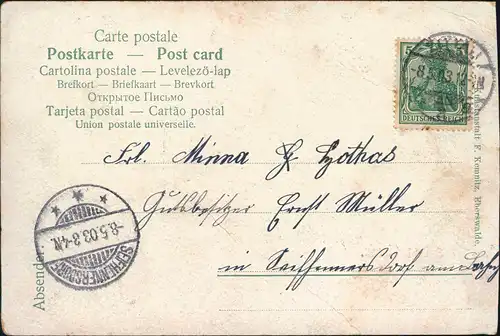 Carte postale
Postkarte — Post card
Cartolina postale — Levelező-lap
Brefkort — Briefkaart — Brevkort
Открытое Письмо
Tarjeta postal — Cartão postal
Union postale universelle.
5 5
DEUTSCHES REICH
-8.5.03
Frl. Minna
Gutsbesitzer Ernst Müller
in Seifhennersdorf
SEIFHENNERSDORF
-8.5.03. 3-4.N.
Absender
F. Kemnitz, Eberswalde.